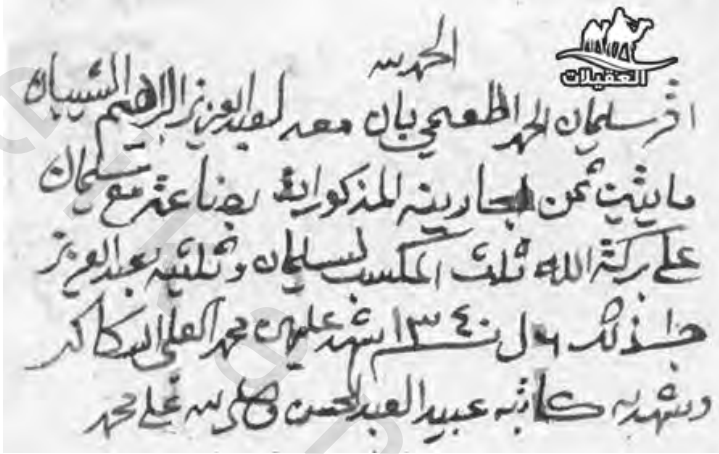 العقيلات
الحمد لله
اقر سليمان الحمد الطعيمي بان معه لعبد العزيز البراهيم الشيبان
مايتين ثمن المذكورات بضاعة مع سليمان
على بركة الله ثلث المكسب لسليمان وثلثيه لعبد العزيز
ذلك ٦ ل سنة ١٣٤٠ شهد عليهن محمد العلي
وشهد به كاتبه عبيد العبد المحسن وصلى الله على محمد